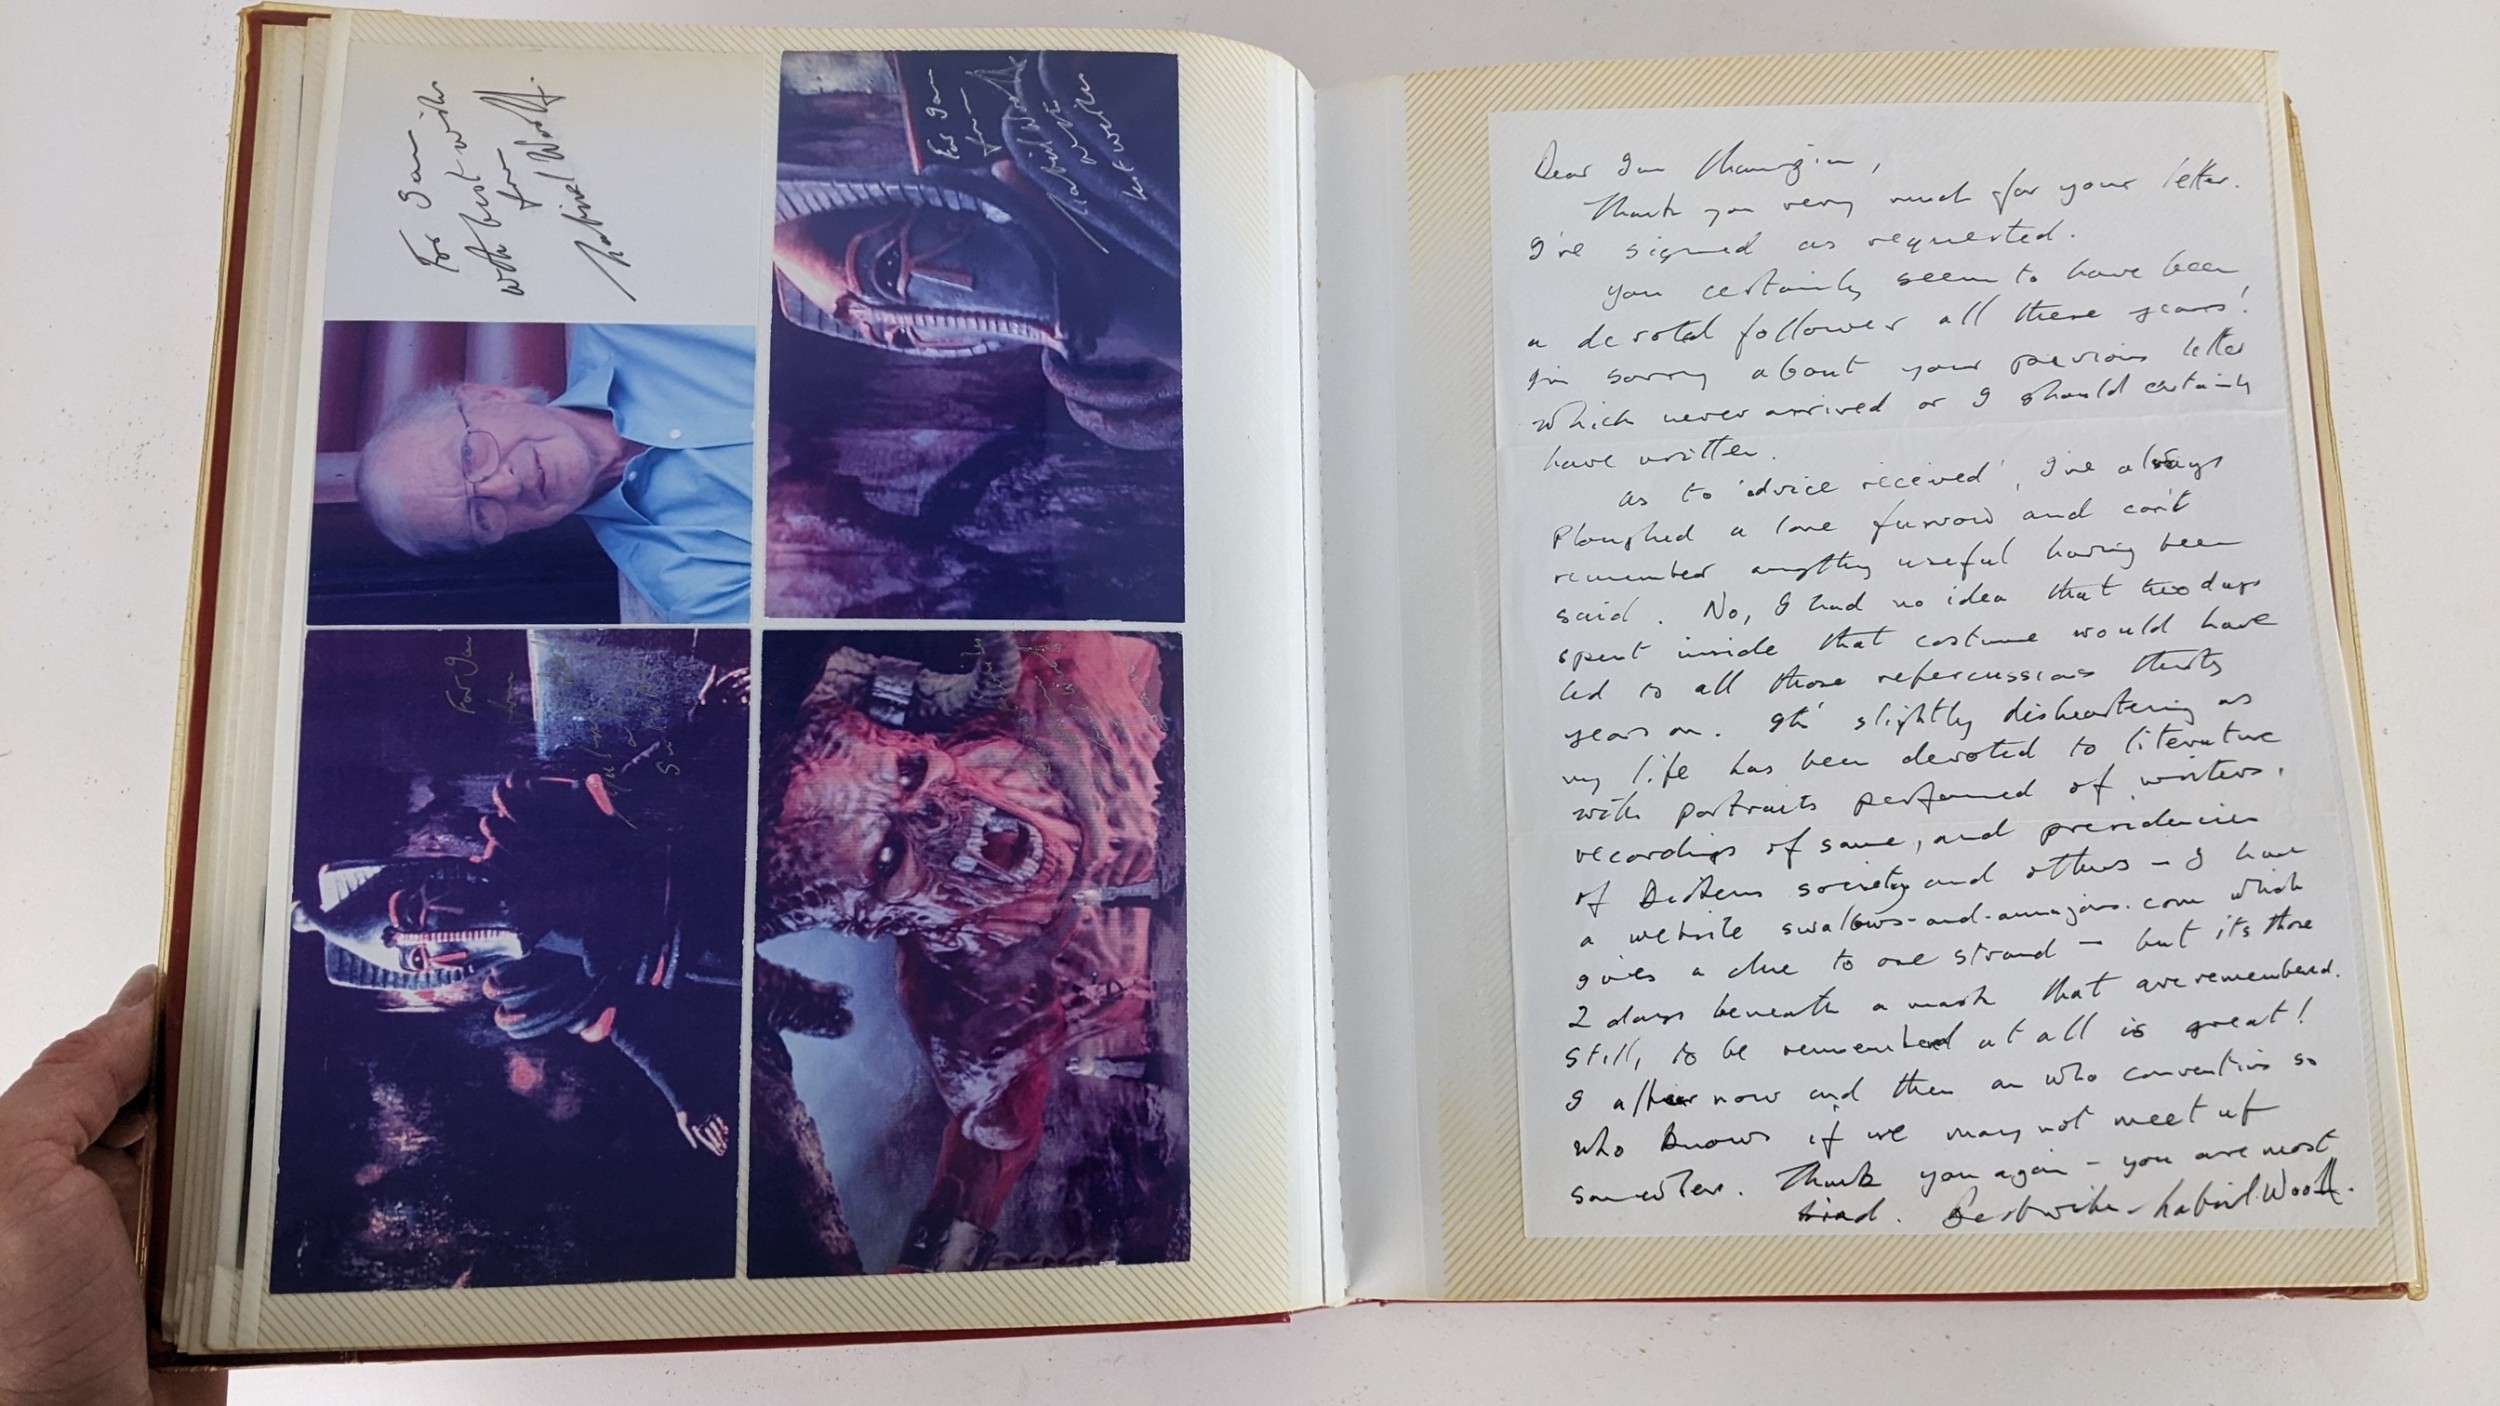 For Ian
with best wishes
from
Gabriel Woolf.
For Ian
from
Gabriel Woolf
with
best wishes
For Ian
from
Gabriel
Sutekh
Dear Ian
Thank you very much for your letter.
I've signed as requested.
You certainly seem to have been
a devoted follower all these years!
I'm sorry about your previous letter
which never arrived or I should certainly
have written.
As to 'advice received', I've always
ploughed a lone furrow and can't
remember anything useful having been
said. No, I had no idea that two days
spent inside that costume would have
led to all those repercussions thirty
years on. It's slightly disheartening as
my life has been devoted to literature
with portraits performed of writers,
recordings of same, and presidencies
of Dickens society and others – I have
a website swallows-and-amazons.com which
gives a clue to one strand – but it's those
2 days beneath a mask that are remembered.
Still, to be remembered at all is great!
I attend now and then a Who convention so
who knows if we may not meet up
somewhere. Thank you again – you are most
kind. Best wishes – Gabriel Woolf.